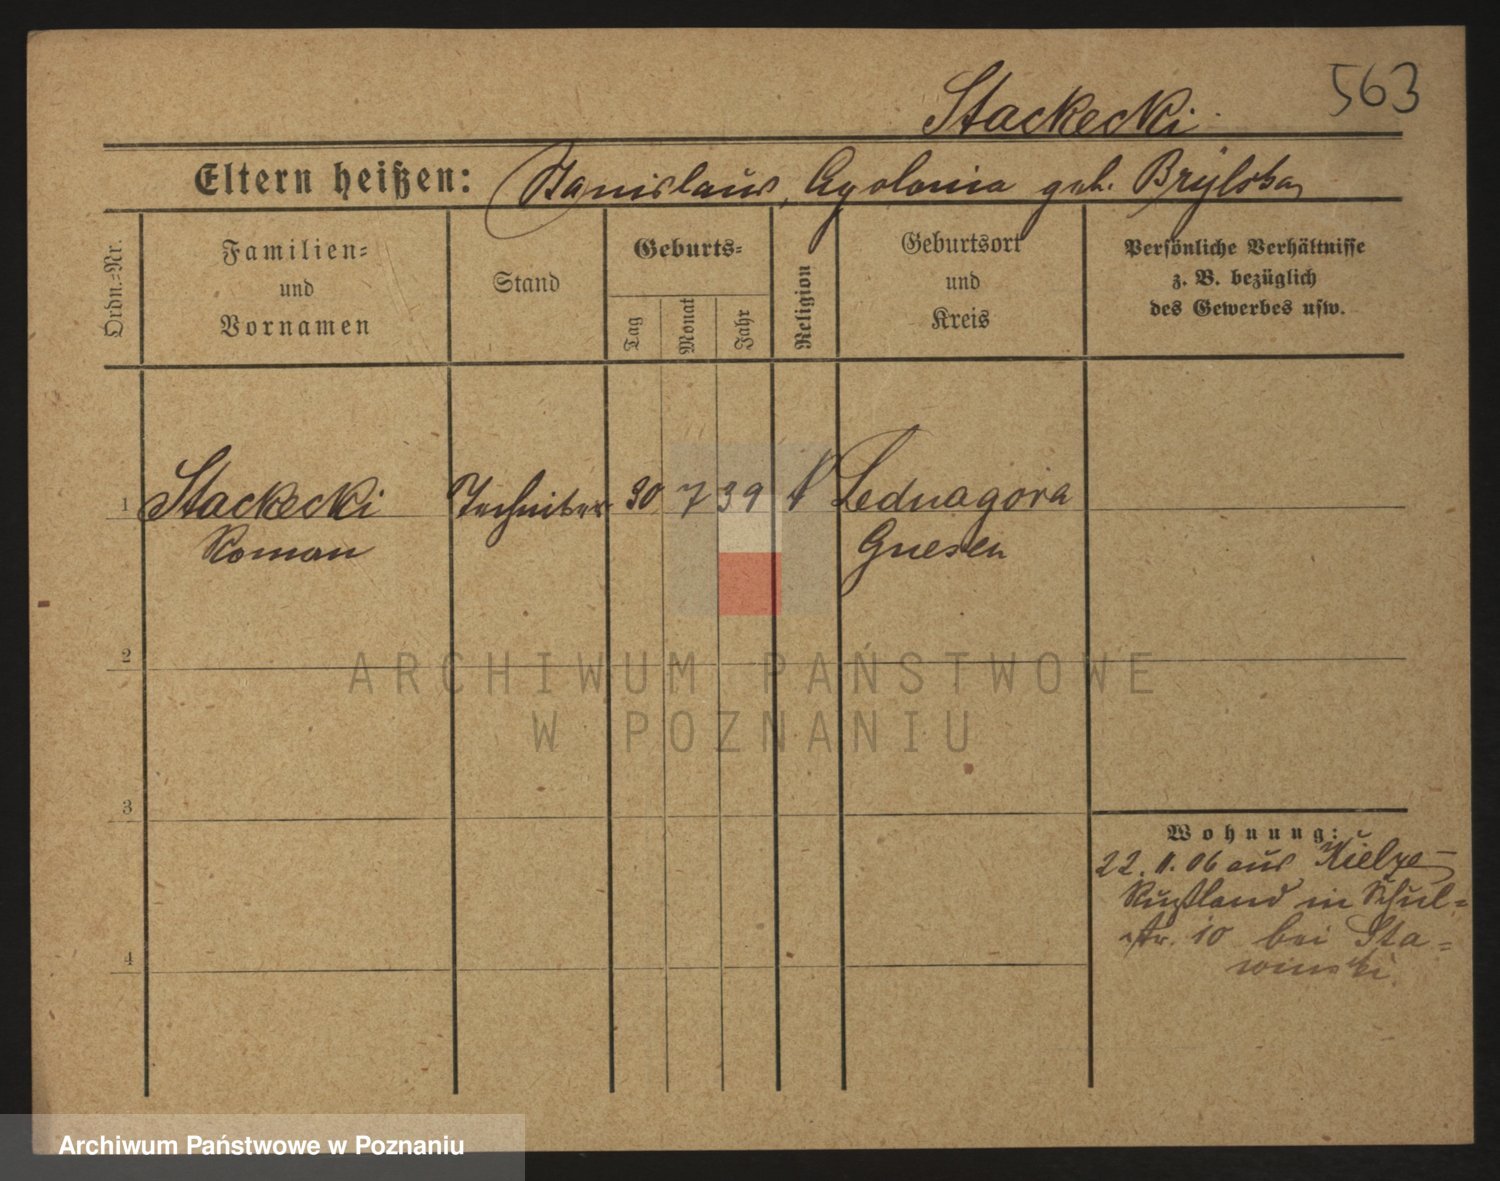 563
Stackecki
Eltern heißen: Stanislaus, Apolonia geb. Brylska
Ordn.=Nr.
Familien= und Vornamen
Stand
Geburts=
Tag
Monat
Jahr
Religion
Geburtsort und Kreis
Persönliche Verhältnisse
z. B. bezüglich
des Gewerbes usw.
1 Stackecki Techniker 30 7 39 k Lednagora
Roman Gnesen
2
3
4
Wohnung:
22. 11. 06 aus Kielze-
Rußland in Schul=
str. 10 bei Sta=
winski
ARCHIWUM PAŃSTWOWE
W POZNANIU
Archiwum Państwowe w Poznaniu